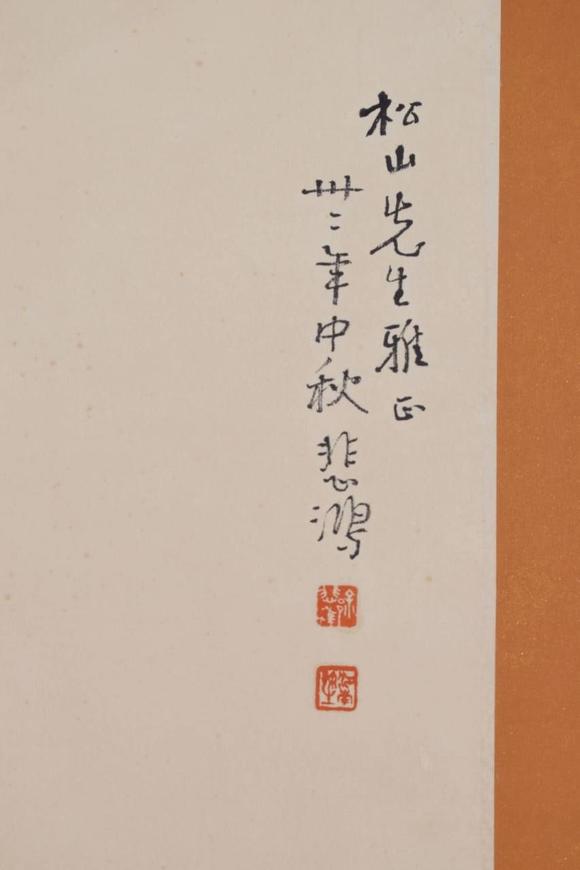 松山先生雅正
卅二年中秋悲鴻